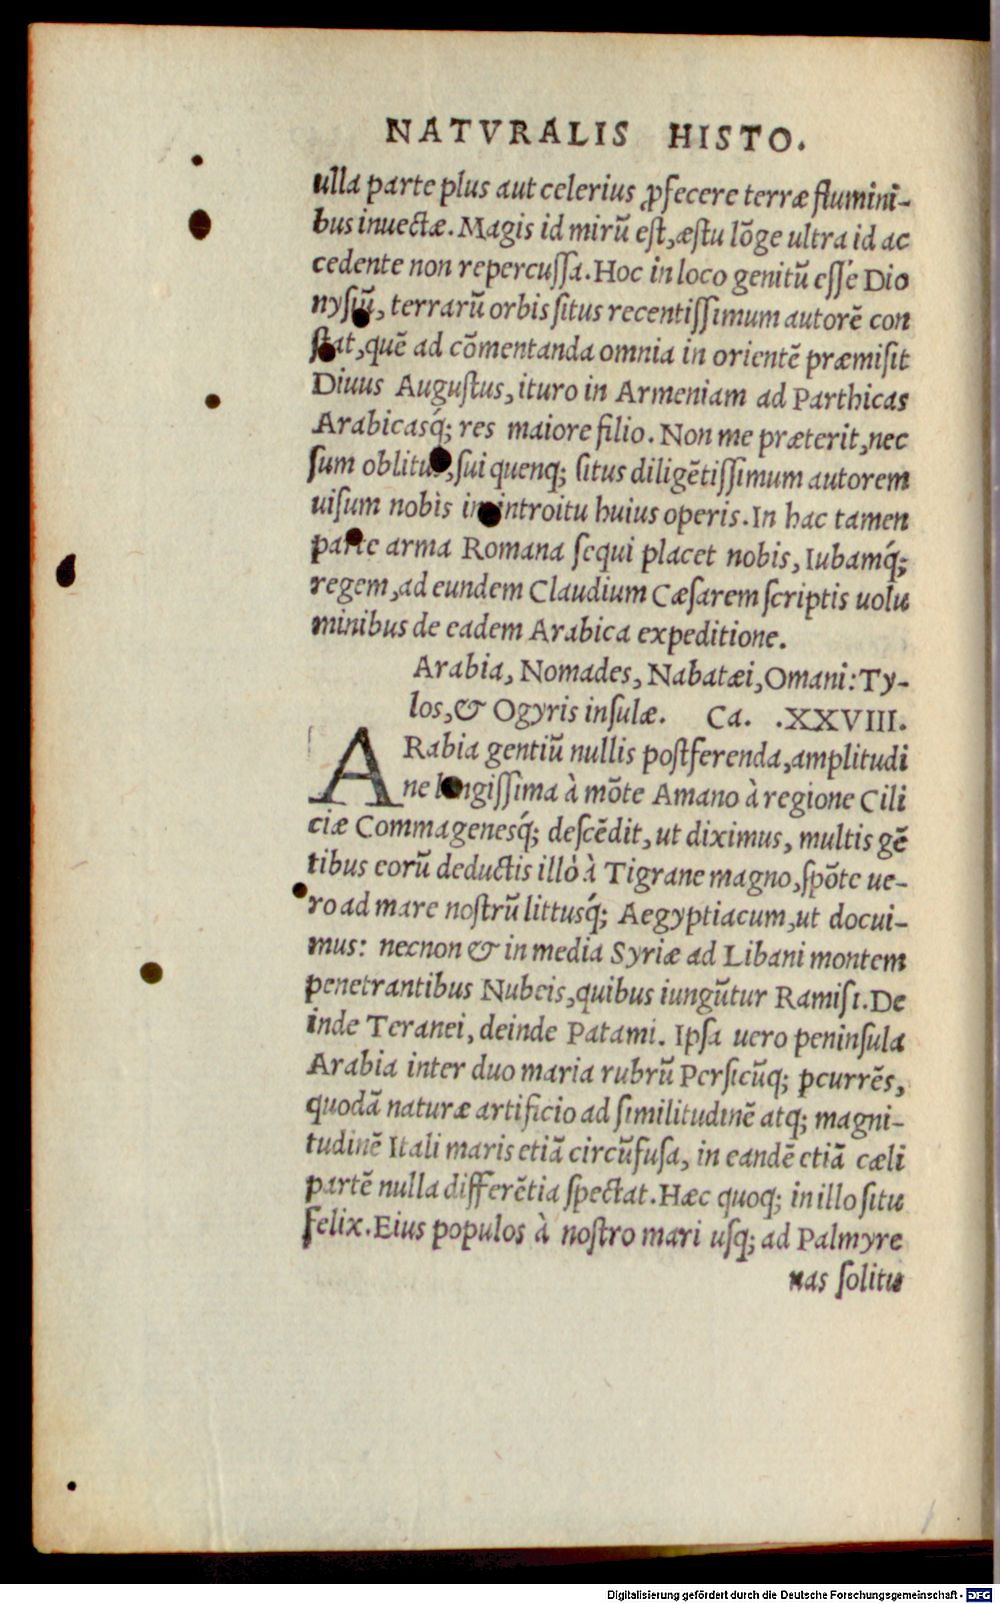 NATVRALIS HISTO.
ulla parte plus aut celerius ꝓfecere terræ flumini-
bus inuectæ. Magis id mirũ eſt, æſtu lõge ultra id ac
cedente non repercuſſa. Hoc in loco genitũ eſſe Dio
nyſiũ, terrarũ orbis ſitus recentiſſimum autorẽ con
ſtat, quẽ ad cõmentanda omnia in orientẽ præmiſit
Diuus Auguſtus, ituro in Armeniam ad Parthicas
Arabicasq́; res maiore filio. Non me præterit, nec
ſum oblitus, ſui quenq; ſitus diligẽtiſſimum autorem
uiſum nobis in introitu huius operis. In hac tamen
parte arma Romana ſequi placet nobis, Iubamq́;
regem, ad eundem Claudium Cæſarem ſcriptis uolu
minibus de eadem Arabica expeditione.
Arabia, Nomades, Nabatæi, Omani: Ty-
los, & Ogyris inſulæ. Ca. .XXVIII.
ARabia gentiũ nullis poſtferenda, amplitudi
ne longiſſima à mõte Amano à regione Cili
ciæ Commagenesq́; deſcẽdit, ut diximus, multis gẽ
tibus eorũ deductis illò à Tigrane magno, ſpõte ue-
ro ad mare noſtrũ littusq́; Aegyptiacum, ut docui-
mus: necnon & in media Syriæ ad Libani montem
penetrantibus Nubeis, quibus iungũtur Ramiſi. De
inde Teranei, deinde Patami. Ipſa uero peninſula
Arabia inter duo maria rubrũ Perſicũq; ꝑcurrẽs,
quodã naturæ artificio ad ſimilitudinẽ atq; magni-
tudinẽ Itali maris etiã circũfuſa, in eandẽ etiã cæli
partẽ nulla differẽtia ſpectat. Hæc quoq; in illo ſitu
felix. Eius populos à noſtro mari uſq; ad Palmyre
nas ſolitu
Digitalisierung gefördert durch die Deutsche Forschungsgemeinschaft - DFG